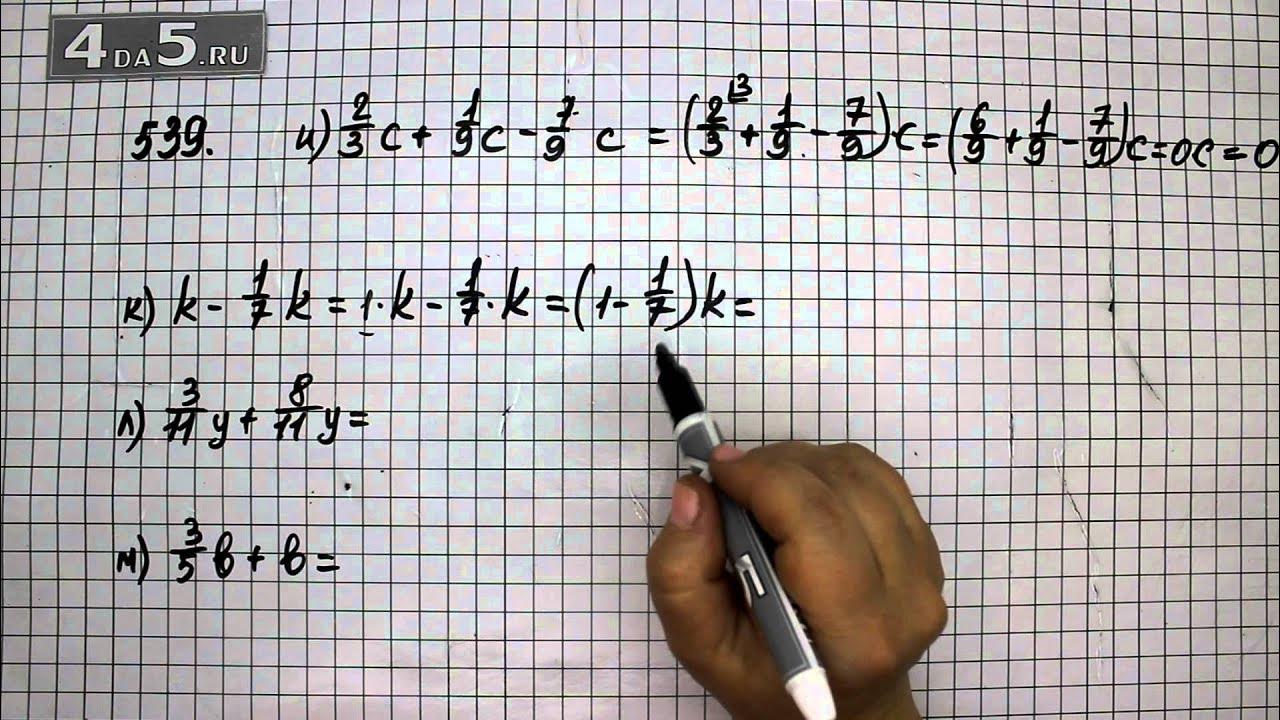 4DA5.RU
539. и) 2/3 c + 1/9 c - 7/9 c = (2/3 ⌊3 + 1/9 - 7/9) c = (6/9 + 1/9 - 7/9) c = 0c = 0
к) k - 1/7 k = 1 · k - 1/7 · k = (1 - 1/7) k =
л) 3/11 y + 8/11 y =
м) 3/5 в + в =